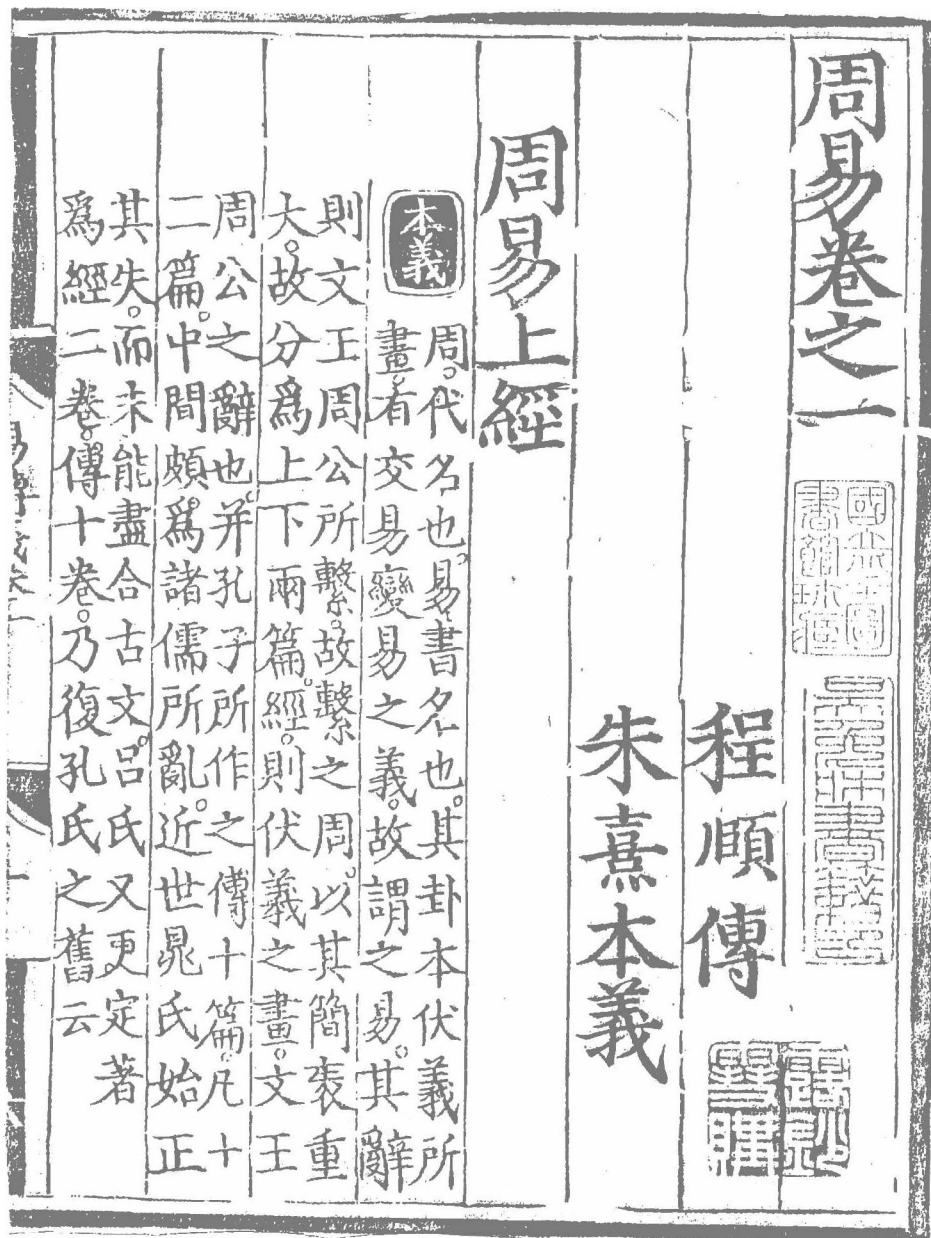 周易卷之一
程頤傳
朱熹本義
周易上經
本義
周。代名也。易。書名也。其卦本伏羲所
畫。有交易變易之義。故謂之易。其辭
則文王周公所繫。故繫之周。以其簡袠重
大。故分爲上下兩篇。經。則伏羲之畫。文王
周公之辭也。并孔子所作之傳十篇。凡十
二篇。中間頗爲諸儒所亂。近世晁氏始正
其失。而未能盡合古文。吕氏又更定著
爲經二卷。傳十卷。乃復孔氏之舊云